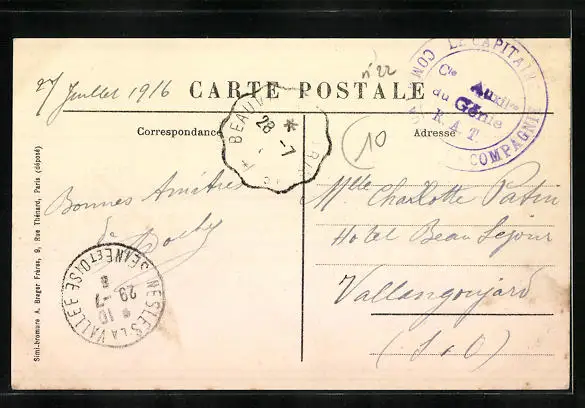 27 Juillet 1916
CARTE POSTALE
n° 22
Correspondance
Adresse
LE CAPITAINE COM
COMPAGNIE
Cie Auxilre
du Génie
R A T
BEAUV
28
-7
10
Bonnes Amitiés
de
Mlle Charlotte Patin
Hotel Beau Séjour
Vallangoujard
(S & O)
NESLES LA VALLEE
SEINE ET OISE
29
-7
16
Simi-bromure A. Breger Frères, 9, Rue Thénard, Paris (déposé)